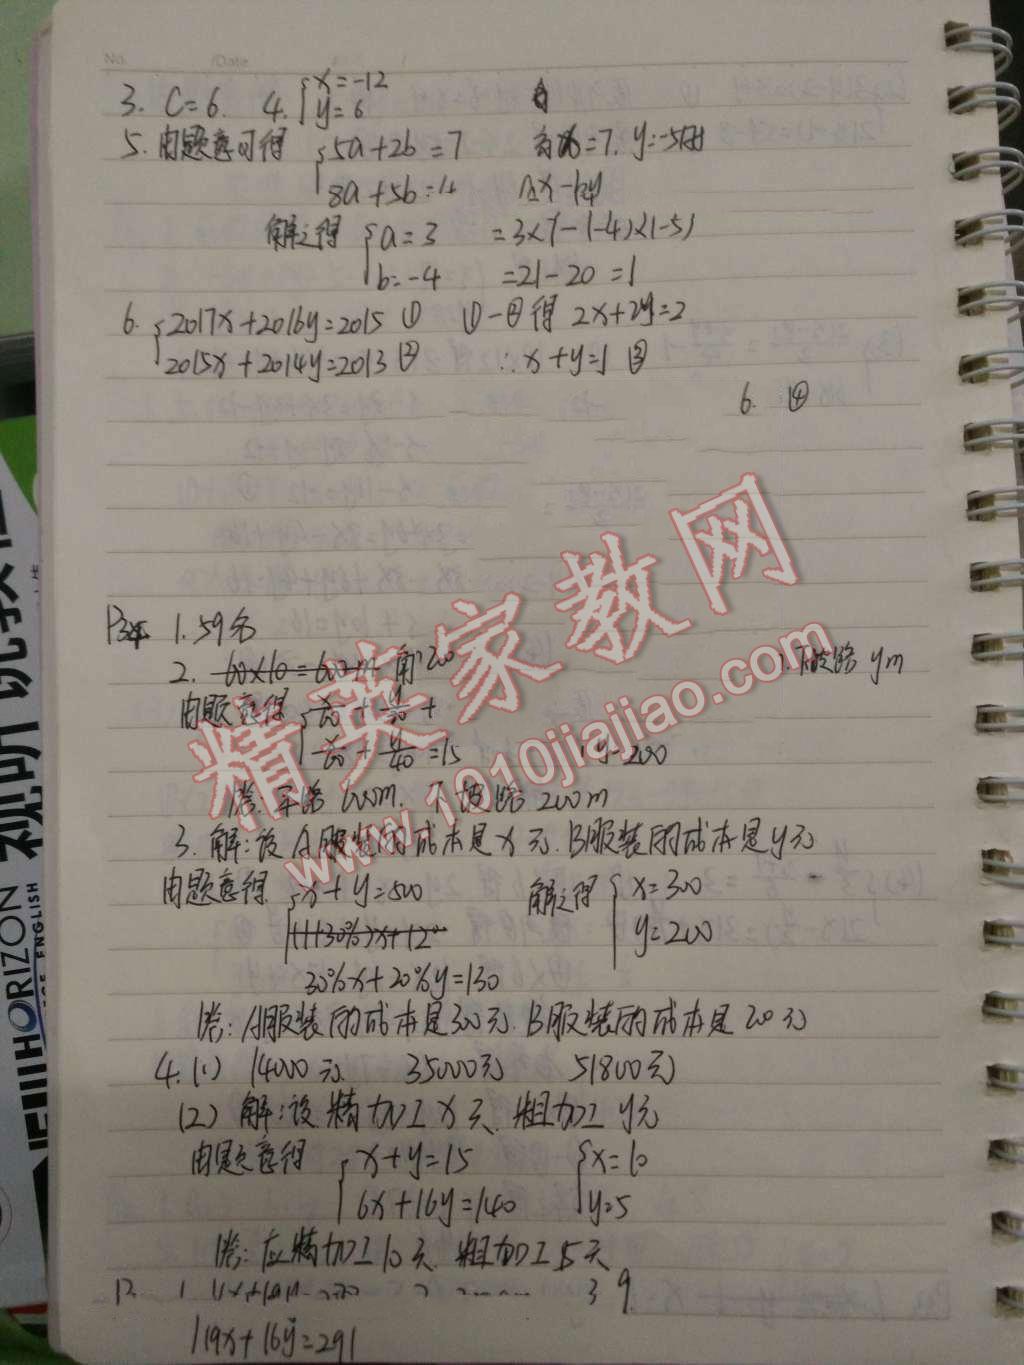 No. /Date
3. C=6. 4. {x=-12
y=6
5. 由题意可得 {5a+2b=7 当x=7. y=-5时
8a+5b=4 ax-by
解之得 {a=3 =3×7-(-4)×(-5)
b=-4 =21-20=1
6. {2017x+2016y=2015 ① ①-②得 2x+2y=2
2015x+2014y=2013 ② ∴x+y=1 ③
6. ④
1. 59名
2. 60×10=600m
下坡路 ym
由题意得
=15 y=200
答: 平路 m. 下坡路 200m
3. 解:设A服装的成本是x元. B服装的成本是y元
由题意得 {x+y=500 解之得 {x=300
(1+30%)x+12 y=200
30%x+20%y=130
答: A服装的成本是300元. B服装的成本是200元
4. (1) 14000元 35000元 51800元
(2) 解:设精加工x天、粗加工y天
由题意得 {x+y=15 {x=10
6x+16y=140 y=5
答: 应精加工10天. 粗加工5天
1. 3. 9.
19x+16y=291
精英家教网
www.1010jiajiao.com
HORIZON
ENGLISH